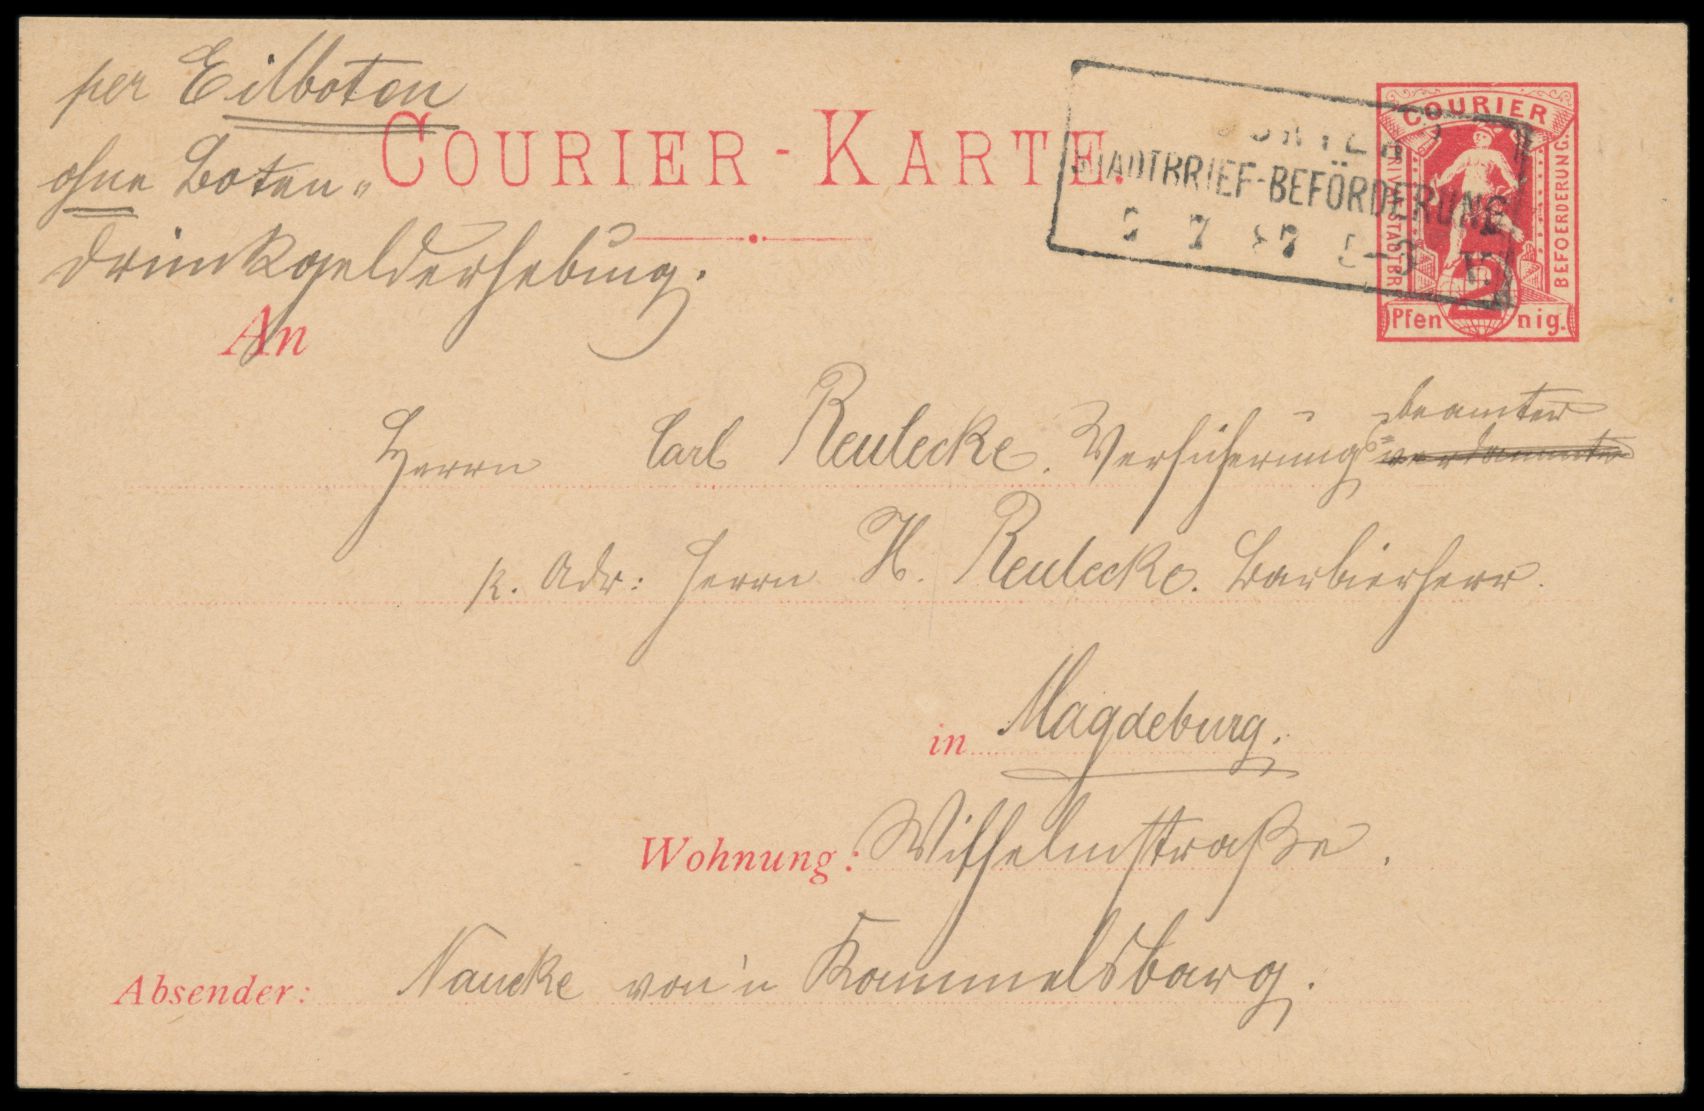 per Eilboten
ohne Boten„
COURIER-KARTE.
drinkgelderhebung.
COURIER
PRIVAT-STADTBR.
BEFOERDERUNG.
2
Pfennig.
COURIER
STADTBRIEF-BEFÖRDERUNG
7 87 V.
An
Herrn Carl Reulecke. Versicherungs=beamter
p. Adr: Herrn H. Reulecke. Barbierherr.
in Magdeburg.
Wohnung: Wilhelmstraße.
Absender: Naucke von'n Kammelsbarg.